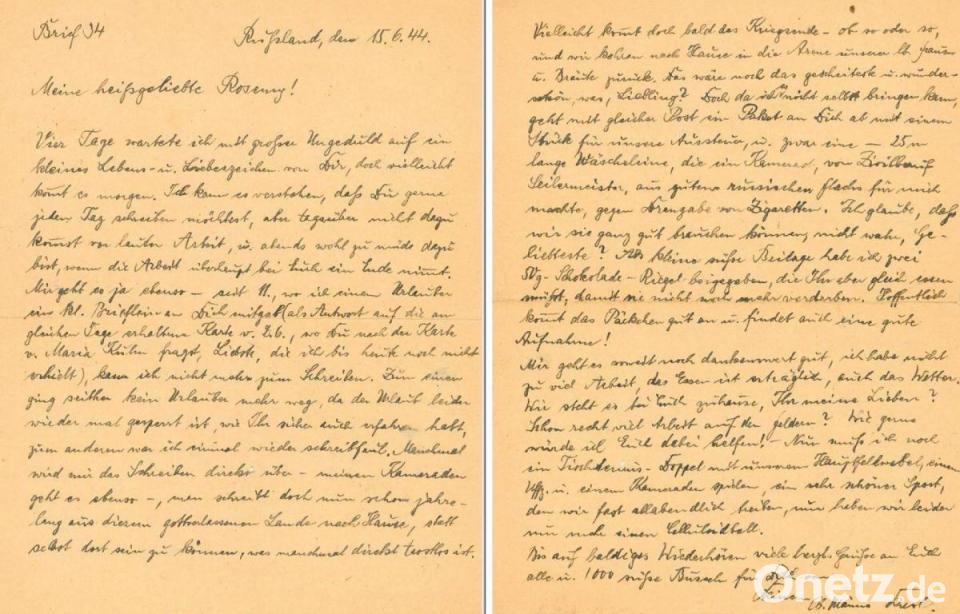 Brief 34
Rußland, den 15.6.44.
Meine heißgeliebte Rosemy!
Vier Tage wartete ich mit großer Ungeduld auf ein
kleines Lebens- u. Liebeszeichen von Dir, doch vielleicht
kommt es morgen. Ich kann es verstehen, daß Du gerne
jeden Tag schreiben möchtest, aber tagsüber nicht dazu
kommst vor lauter Arbeit, u. abends wohl zu müde dazu
bist, wenn die Arbeit überhaupt bei Euch ein Ende nimmt.
Mir geht es ja ebenso – seit 11., wo ich einem Urlauber
ein kl. Brieflein an Dich mitgab (als Antwort auf die am
gleichen Tage erhaltene Karte v. 2.6., wo Du nach der Karte
v. Maria Kulm fragst, Liebste, die ich bis heute noch nicht
erhielt), kam ich nicht mehr zum Schreiben. Zum einen
ging seither kein Urlauber mehr weg, da der Urlaub leider
wieder mal gesperrt ist, wie Ihr sicher auch erfahren habt,
zum anderen war ich einmal wieder schreibfaul. Manchmal
wird mir das Schreiben direkt über – meinen Kameraden
geht es ebenso –, man schreibt doch nun schon jahre-
lang aus diesem gottverlassenen Lande nach Hause, statt
selbst dort sein zu können, was manchmal direkt trostlos ist.
Vielleicht kommt doch bald das Kriegsende – ob so oder so,
und wir kehren nach Hause in die Arme unserer lb. Frauen
u. Bräute zurück. Das wäre noch das gescheiteste u. wunder-
schön, was, Liebling? Doch da ich nicht selbst bringen kann,
geht mit gleicher Post ein Paket an Dich ab mit einem
Stück für unsere Aussteuer, u. zwar eine – 25 m
lange Wäscheleine, die ein Kamerad, von Zivilberuf
Seilermeister, aus gutem russischen Flachs für mich
machte, gegen Drangabe von Zigaretten. Ich glaube, daß
wir sie ganz gut brauchen können, nicht wahr, Ge-
liebteste? Als kleine süße Beilage habe ich zwei
Schokolade-Riegel beigegeben, die Ihr aber gleich essen
müßt, damit sie nicht noch mehr verderben. Hoffentlich
kommt das Päckchen gut an u. findet auch eine gute
Aufnahme!
Mir geht es soweit noch dankenswert gut, ich habe nicht
zu viel Arbeit, das Essen ist erträglich, auch das Wetter.
Wie steht es bei Euch zuhause, Ihr meine Lieben?
Schon recht viel Arbeit auf den Feldern? Wie gerne
würde ich Euch dabei helfen! – Nun muß ich noch
ein Tischtennis-Doppel mit unserem Hauptfeldwebel, einem
Uffz. u. einem Kameraden spielen, ein sehr schöner Sport,
den wir fast allabendlich treiben, nur haben wir leider
nur mehr einen Celluloidball.
Bis auf baldiges Wiederhören viele herzl. Grüße an Euch
alle u. 1000 süße Busserl für
Onetz.de